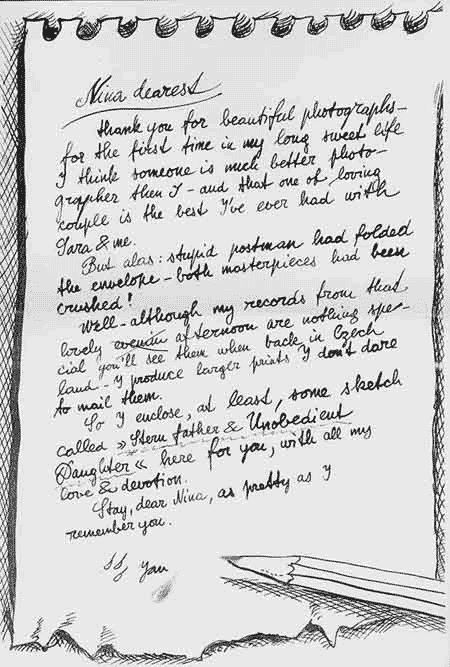 Nina dearest
thank you for beautiful photographs –
for the first time in my long sweet life
I think someone is much better photo-
grapher then I – and that one of loving
couple is the best I've ever had with
Sara & me.
But alas: stupid postman had folded
the envelope – both masterpieces had been
crushed!
Well – although my records from that
lovely afternoon are nothing spe-
cial you'll see them when back in Czech
land – I produce larger prints I don't dare
to mail them.
So I enclose, at least, some sketch
called » Stern father & Unobedient
Daughter « here for you, with all my
love & devotion.
Stay, dear Nina, as pretty as I
remember you.
Yan